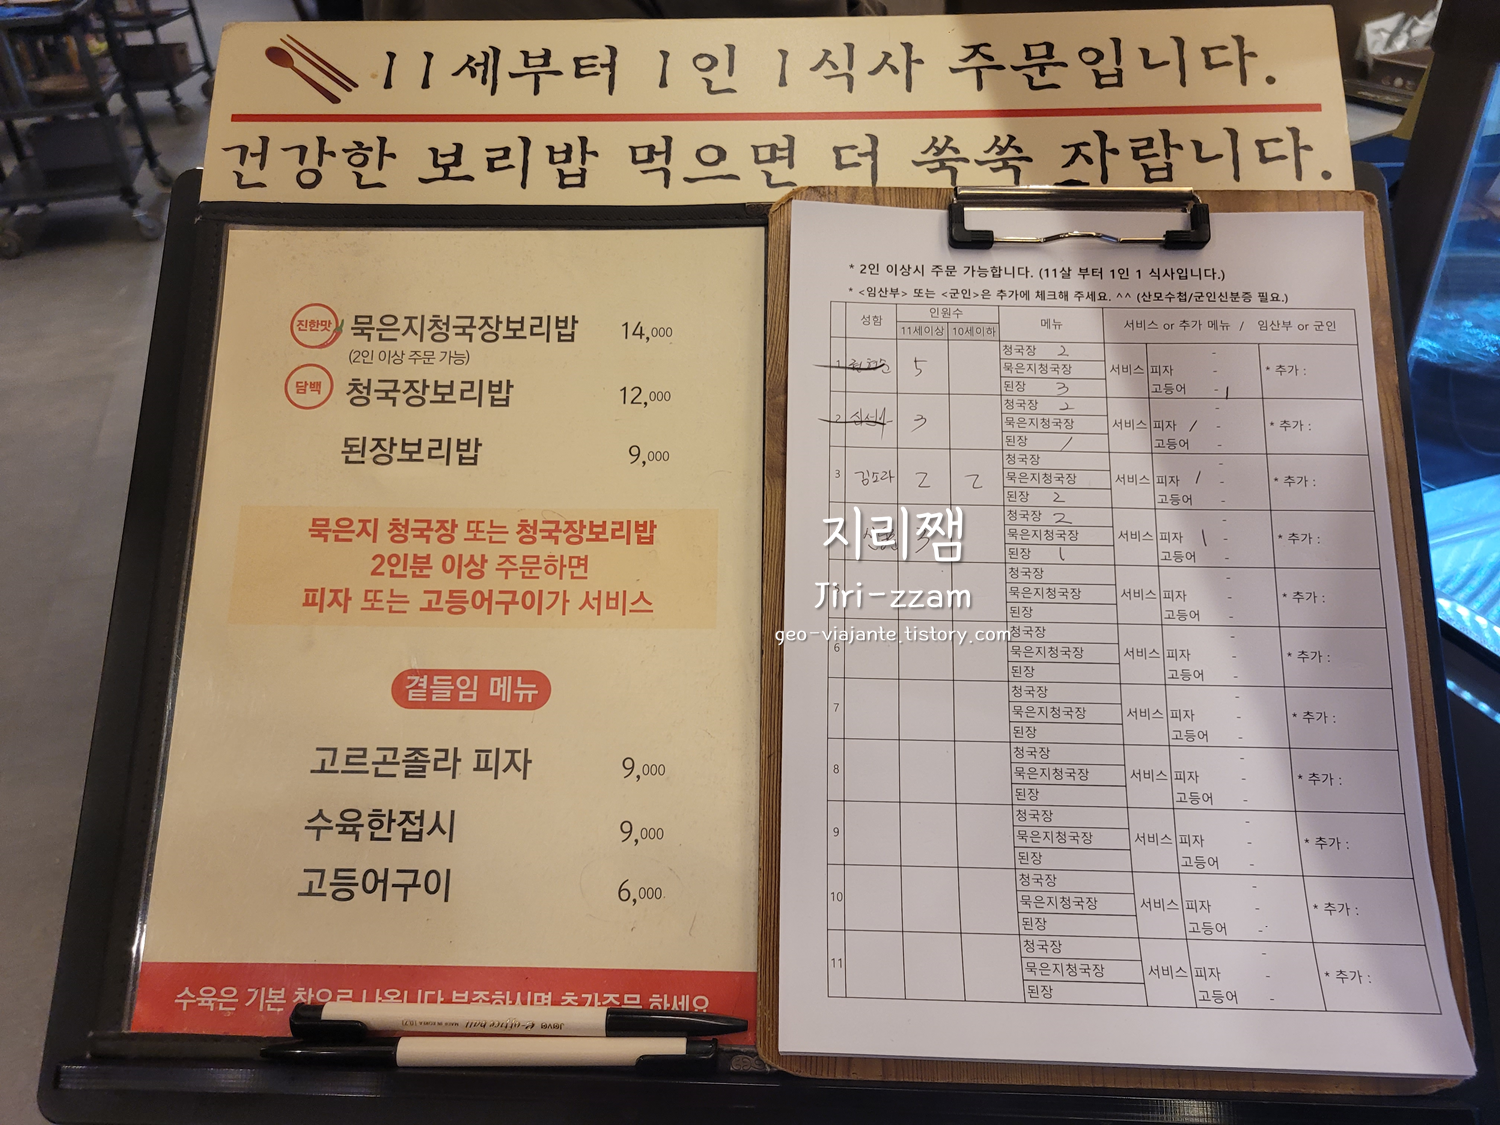 11세부터 1인 1식사 주문입니다.
건강한 보리밥 먹으면 더 쑥쑥 자랍니다.
진한맛 묵은지청국장보리밥 14,000
(2인 이상 주문 가능)
담백 청국장보리밥 12,000
된장보리밥 9,000
묵은지 청국장 또는 청국장보리밥
2인분 이상 주문하면
피자 또는 고등어구이가 서비스
곁들임 메뉴
고르곤졸라 피자 9,000
수육한접시 9,000
고등어구이 6,000
수육은 기본 찬으로 나옵니다 부족하시면 추가주문 하세요
* 2인 이상시 주문 가능합니다. (11살 부터 1인 1 식사입니다.)
* <임산부> 또는 <군인>은 추가에 체크해 주세요. ^^ (산모수첩/군인신분증 필요.)
성함 인원수 메뉴 서비스 or 추가 메뉴 / 임산부 or 군인
11세이상 10세이하
청국장 2 -
1 5 묵은지청국장 서비스 피자 * 추가 :
된장 3 고등어 - 1
청국장 2 -
2 3 묵은지청국장 서비스 피자 / - * 추가 :
된장 / 고등어
청국장 -
3 김소라 2 2 묵은지청국장 서비스 피자 / - * 추가 :
된장 2 고등어
청국장 2 -
3 묵은지청국장 서비스 피자 \ - * 추가 :
된장 1 고등어
청국장 -
묵은지청국장 서비스 피자 - * 추가 :
된장 고등어
청국장 -
6 묵은지청국장 서비스 피자 - * 추가 :
된장 고등어 -
청국장 -
7 묵은지청국장 서비스 피자 - * 추가 :
된장 고등어 -
청국장 -
8 묵은지청국장 서비스 피자 - * 추가 :
된장 고등어 -
청국장 -
9 묵은지청국장 서비스 피자 - * 추가 :
된장 고등어 -
청국장 -
10 묵은지청국장 서비스 피자 - * 추가 :
된장 고등어 -
청국장 -
11 묵은지청국장 서비스 피자 - * 추가 :
된장 고등어 -
지리쨈
Jiri-zzam
geo-viajante.tistory.com